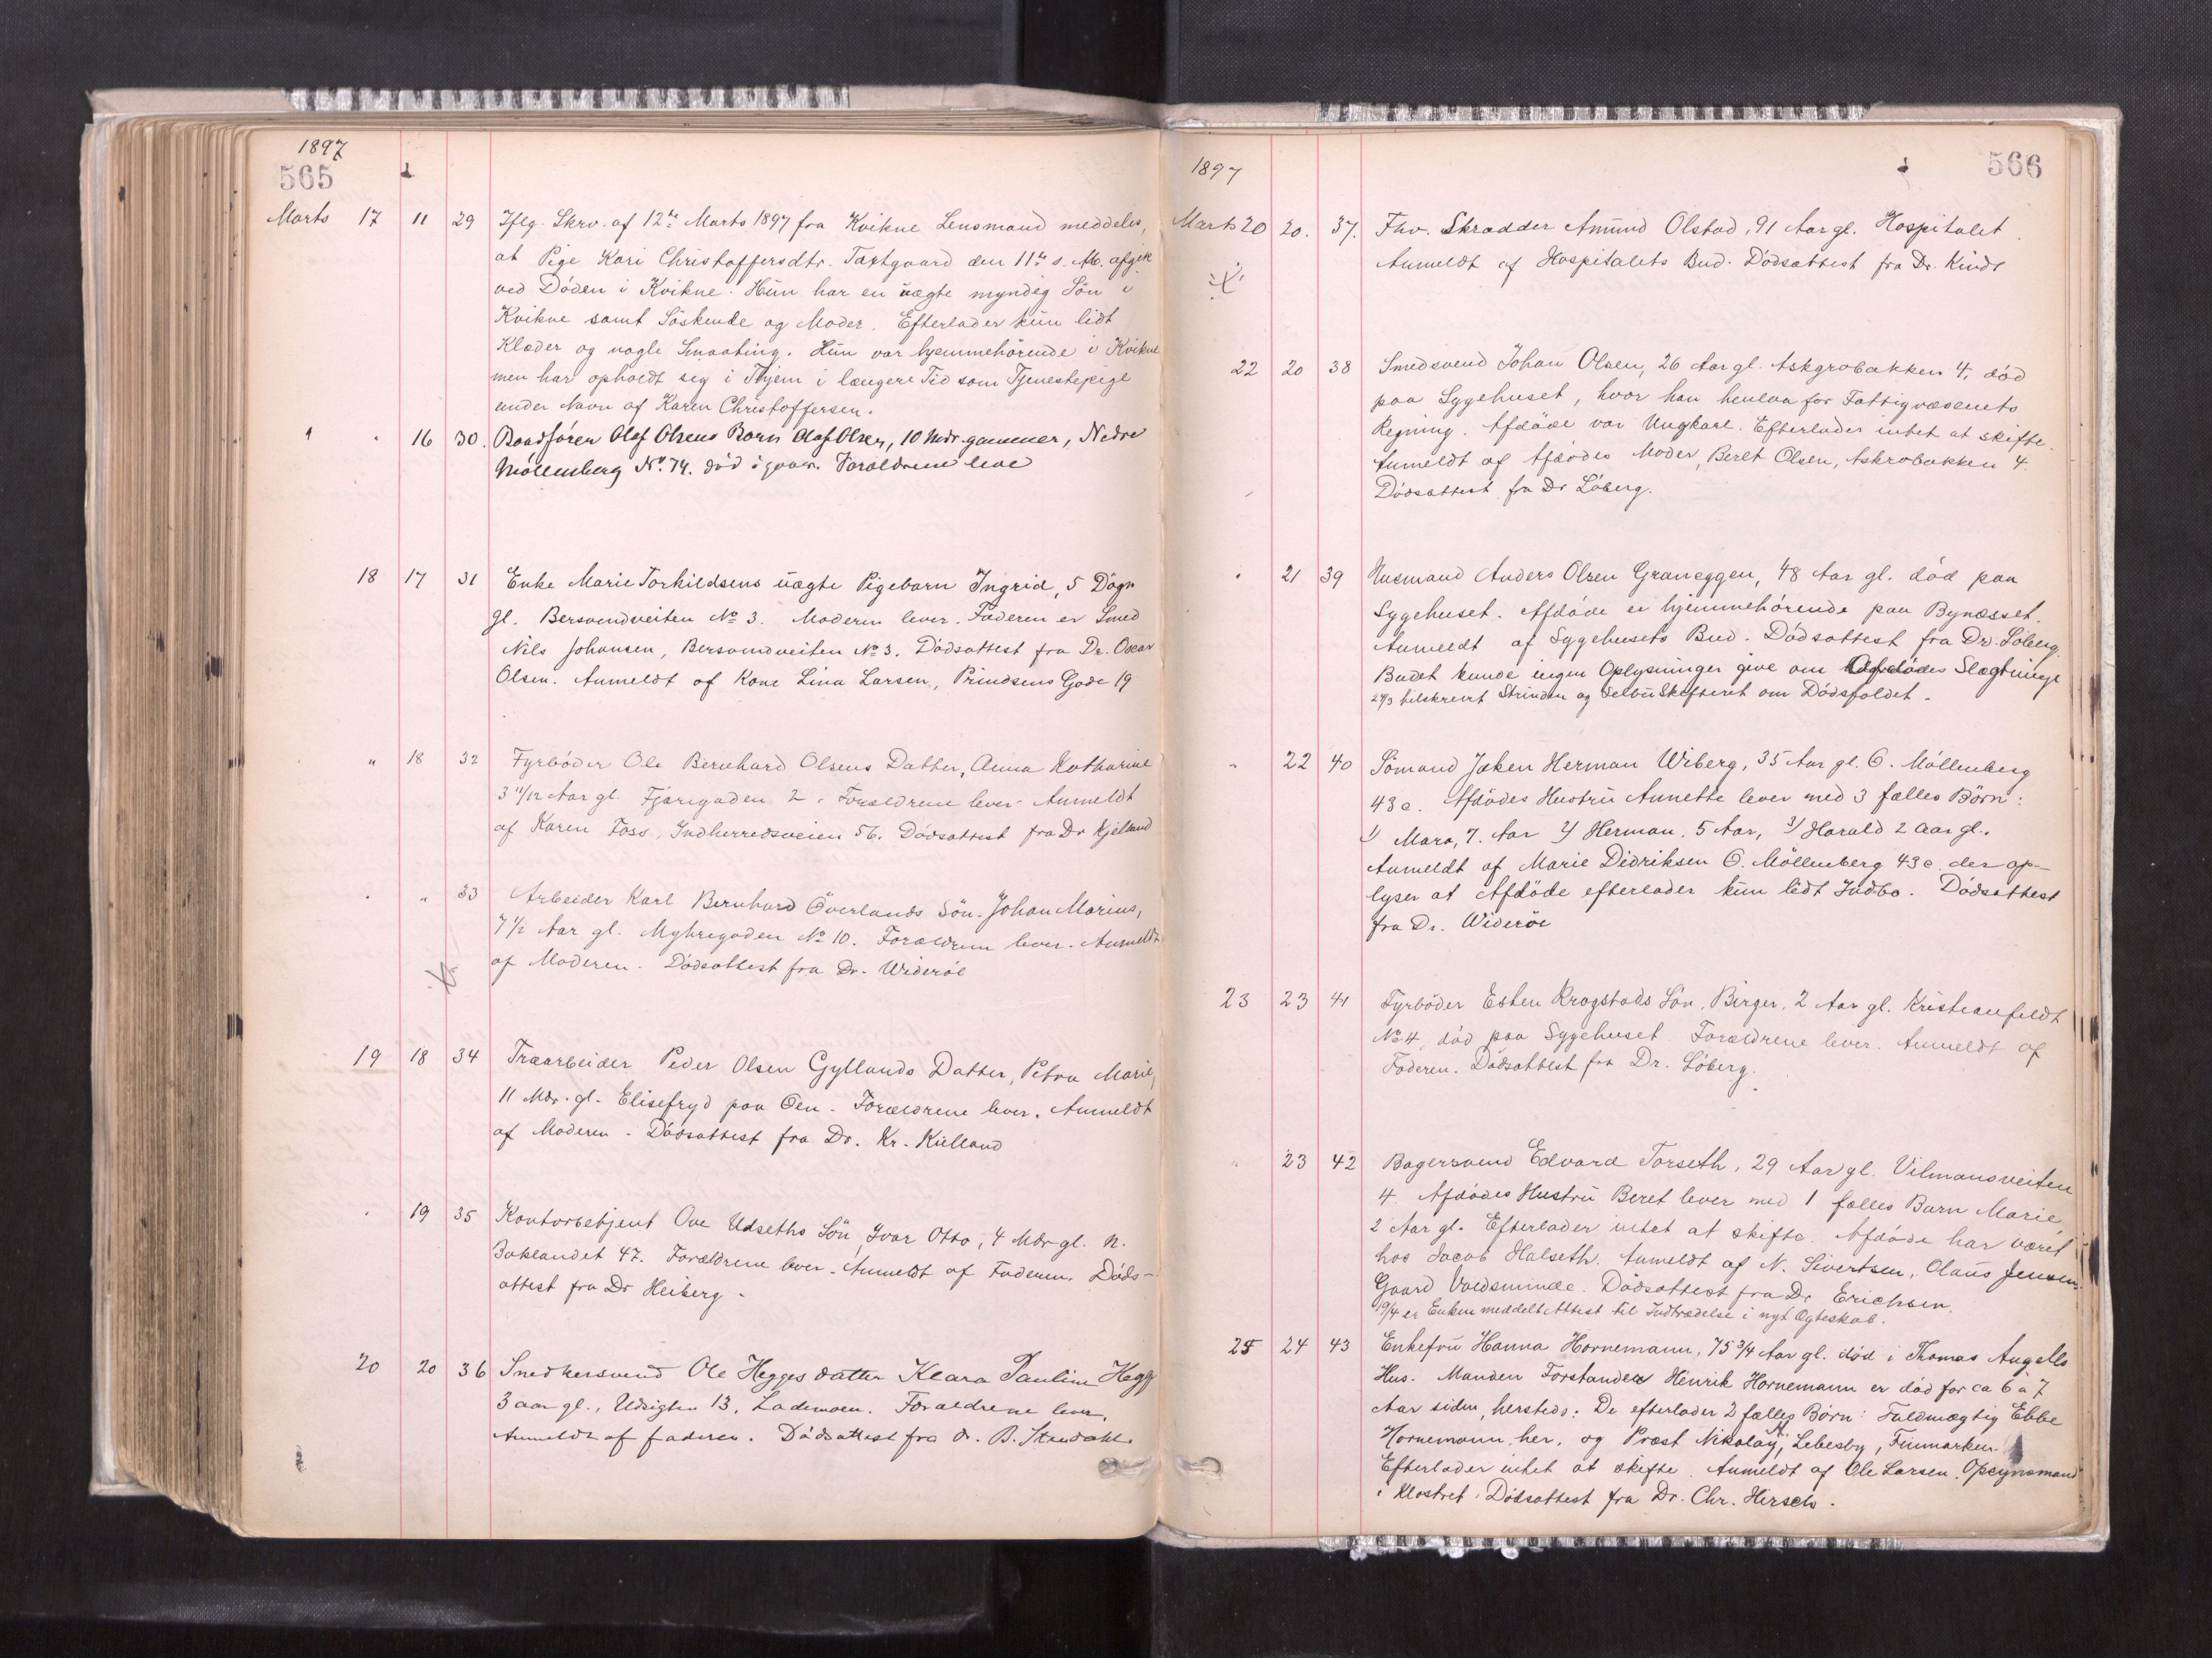 1897
565
Marts 17 11 29 Iflg. Skrv. af 12te Marts 1897 fra Kvikne Lensmand meddeles,
at Pige Kari Christoffersdtr. den 11te s. M. afgik
ved Döden i Kvikne. Hun har en uægte myndig Sön i
Kvikne samt Söskende og Moder. Efterlader kun lidt
Klæder og nogle Smaating. Hun var hjemmehörende i Kvikne
men har opholdt seg i Thjem i længere Tid som Tjenestepige
under Navn af Karen Christoffersen.
16 30. Olaf Olsens Barn Olaf Olsen, 10 Mdr. gammer, Nedre
Möllenberg No. 74. död igaar. Forældrene leve
18 17 31 Enke Marie Torkildsens uægte Pigebarn Ingrid, 5 Dögn
gl. Bersvendveiten No 3. Moderen lever. Faderen er Smed
Nils Johansen, Bersvendveiten No 3. Dödsattest fra Dr. Oscar
Olsen. Anmeldt af Kone Lina Larsen, Prindsens Gade 19
" 18 32 Fyrböder Ole Bernhard Olsens Datter, Anna Katharine
3 11/12 Aar gl. Fjæregaden 2. Forældrene lever. Anmeldt
af Karen Foss, Indherredsveien 56. Dödsattest fra Dr Kjelland
" 33 Arbeider Karl Bernhard Överlands Sön Johan Marius,
7 1/2 Aar gl. Myhregaden No 10. Forældrene lever. Anmeldt
af Moderen. Dödsattest fra Dr. Wideröe
19 18 34 Træarbeider Peder Olsen Gyllands Datter, Petra Marie,
11 Mdr. gl. Elisefryd paa Öen. Forældrene lever. Anmeldt
af Moderen. Dödsattest fra Dr. Kr. Kielland
19 35 Kontorbetjent Ove Udseths Sön, Ivar Otto, 4 Mdr gl. N.
Baklandet 47. Forældrene lever. Anmeldt af Faderen. Döds-
attest fra Dr Heiberg.
20 20 36 Snedkersvend Ole Hegges datter Klara Pauline Hegge
3 aar gl., Udsigten 13, Lademoen. Forældrene lever.
Anmeldt af faderen. Dödsattest fra dr. B. Stendahl.
1897
566
Marts 20 20. 37. Fhv. Skrædder Amund Olstad, 91 Aar gl. Hospitalet.
Anmeldt af Hospitalets Bud. Dödsattest fra Dr. Kindt
22 20 38 Smedsvend Johan Olsen, 26 Aar gl. Askgrobakken 4, död
paa Sygehuset, hvor han henlaa for Fattigvæsenets
Regning. Afdöde var Ungkarl. Efterlader intet at skifte.
Anmeldt af Afdödes Moder, Beret Olsen, Askrobakken 4.
Dödsattest fra Dr Löberg.
21 39 Husmand Anders Olsen Graneggen, 48 Aar gl. död paa
Sygehuset. Afdöde er hjemmehörende paa Bynæsset.
Anmeldt af Sygehusets Bud. Dödsattest fra Dr. Löberg.
Budet kunde ingen Oplysninger give om Afdödes Slægtninge
24/3 tilskrevet Strinden og Selbu Skifteret om Dödsfaldet.
" 22 40 Sömand Jaken Herman Wiberg, 35 Aar gl. Ö. Möllenberg
43c. Afdödes Hustru Annette lever med 3 fælles Börn:
1) Mara, 7. Aar 2) Herman. 5 Aar, 3) Harald 2 aar gl.
Anmeldt af Marie Didriksen Ö. Möllenberg 43c. der op-
lyser at Afdöde efterlader kun lidt Indbo. Dödsattest
fra Dr. Wideröe
23 23 41 Fyrböder Esten Krogstads Sön, Birger, 2 Aar gl. Kristianfeldt
No 4, död paa Sygehuset. Forældrene lever. Anmeldt af
Faderen. Dödsattest fra Dr. Löberg.
" 23 42 Bagersvend Edvard Torseth, 29 Aar gl. Vilmansveiten
4. Afdödes Hustru Beret lever med 1 fælles Barn Marie,
2 Aar gl. Efterlader intet at skifte. Afdöde har været
hos Jacob Halseth. Anmeldt af N. Sivertsen, Olaus Jensens
Gaard Voldsminde. Dödsattest fra Dr Erichsen.
19/4 er Enken meddelt Attest til Indtrædelse i nyt Ægteskab.
25 24 43 Enkefru Hanna Hornemann, 75 3/4 Aar gl. död i Thomas Angells
Hus. Manden Forstander Henrik Hornemann er död for ca 6 a 7
Aar siden, hersteds. De efterlader 2 fælles Börn: Fuldmægtig Ebbe
Hornemann, her, og Præst Nikolay, Lebesby, Finmarken.
Efterlader intet at skifte. Anmeldt af Ole Larsen, Opsynsmand
i Klostret. Dödsattest fra Dr. Chr. Hirsch.